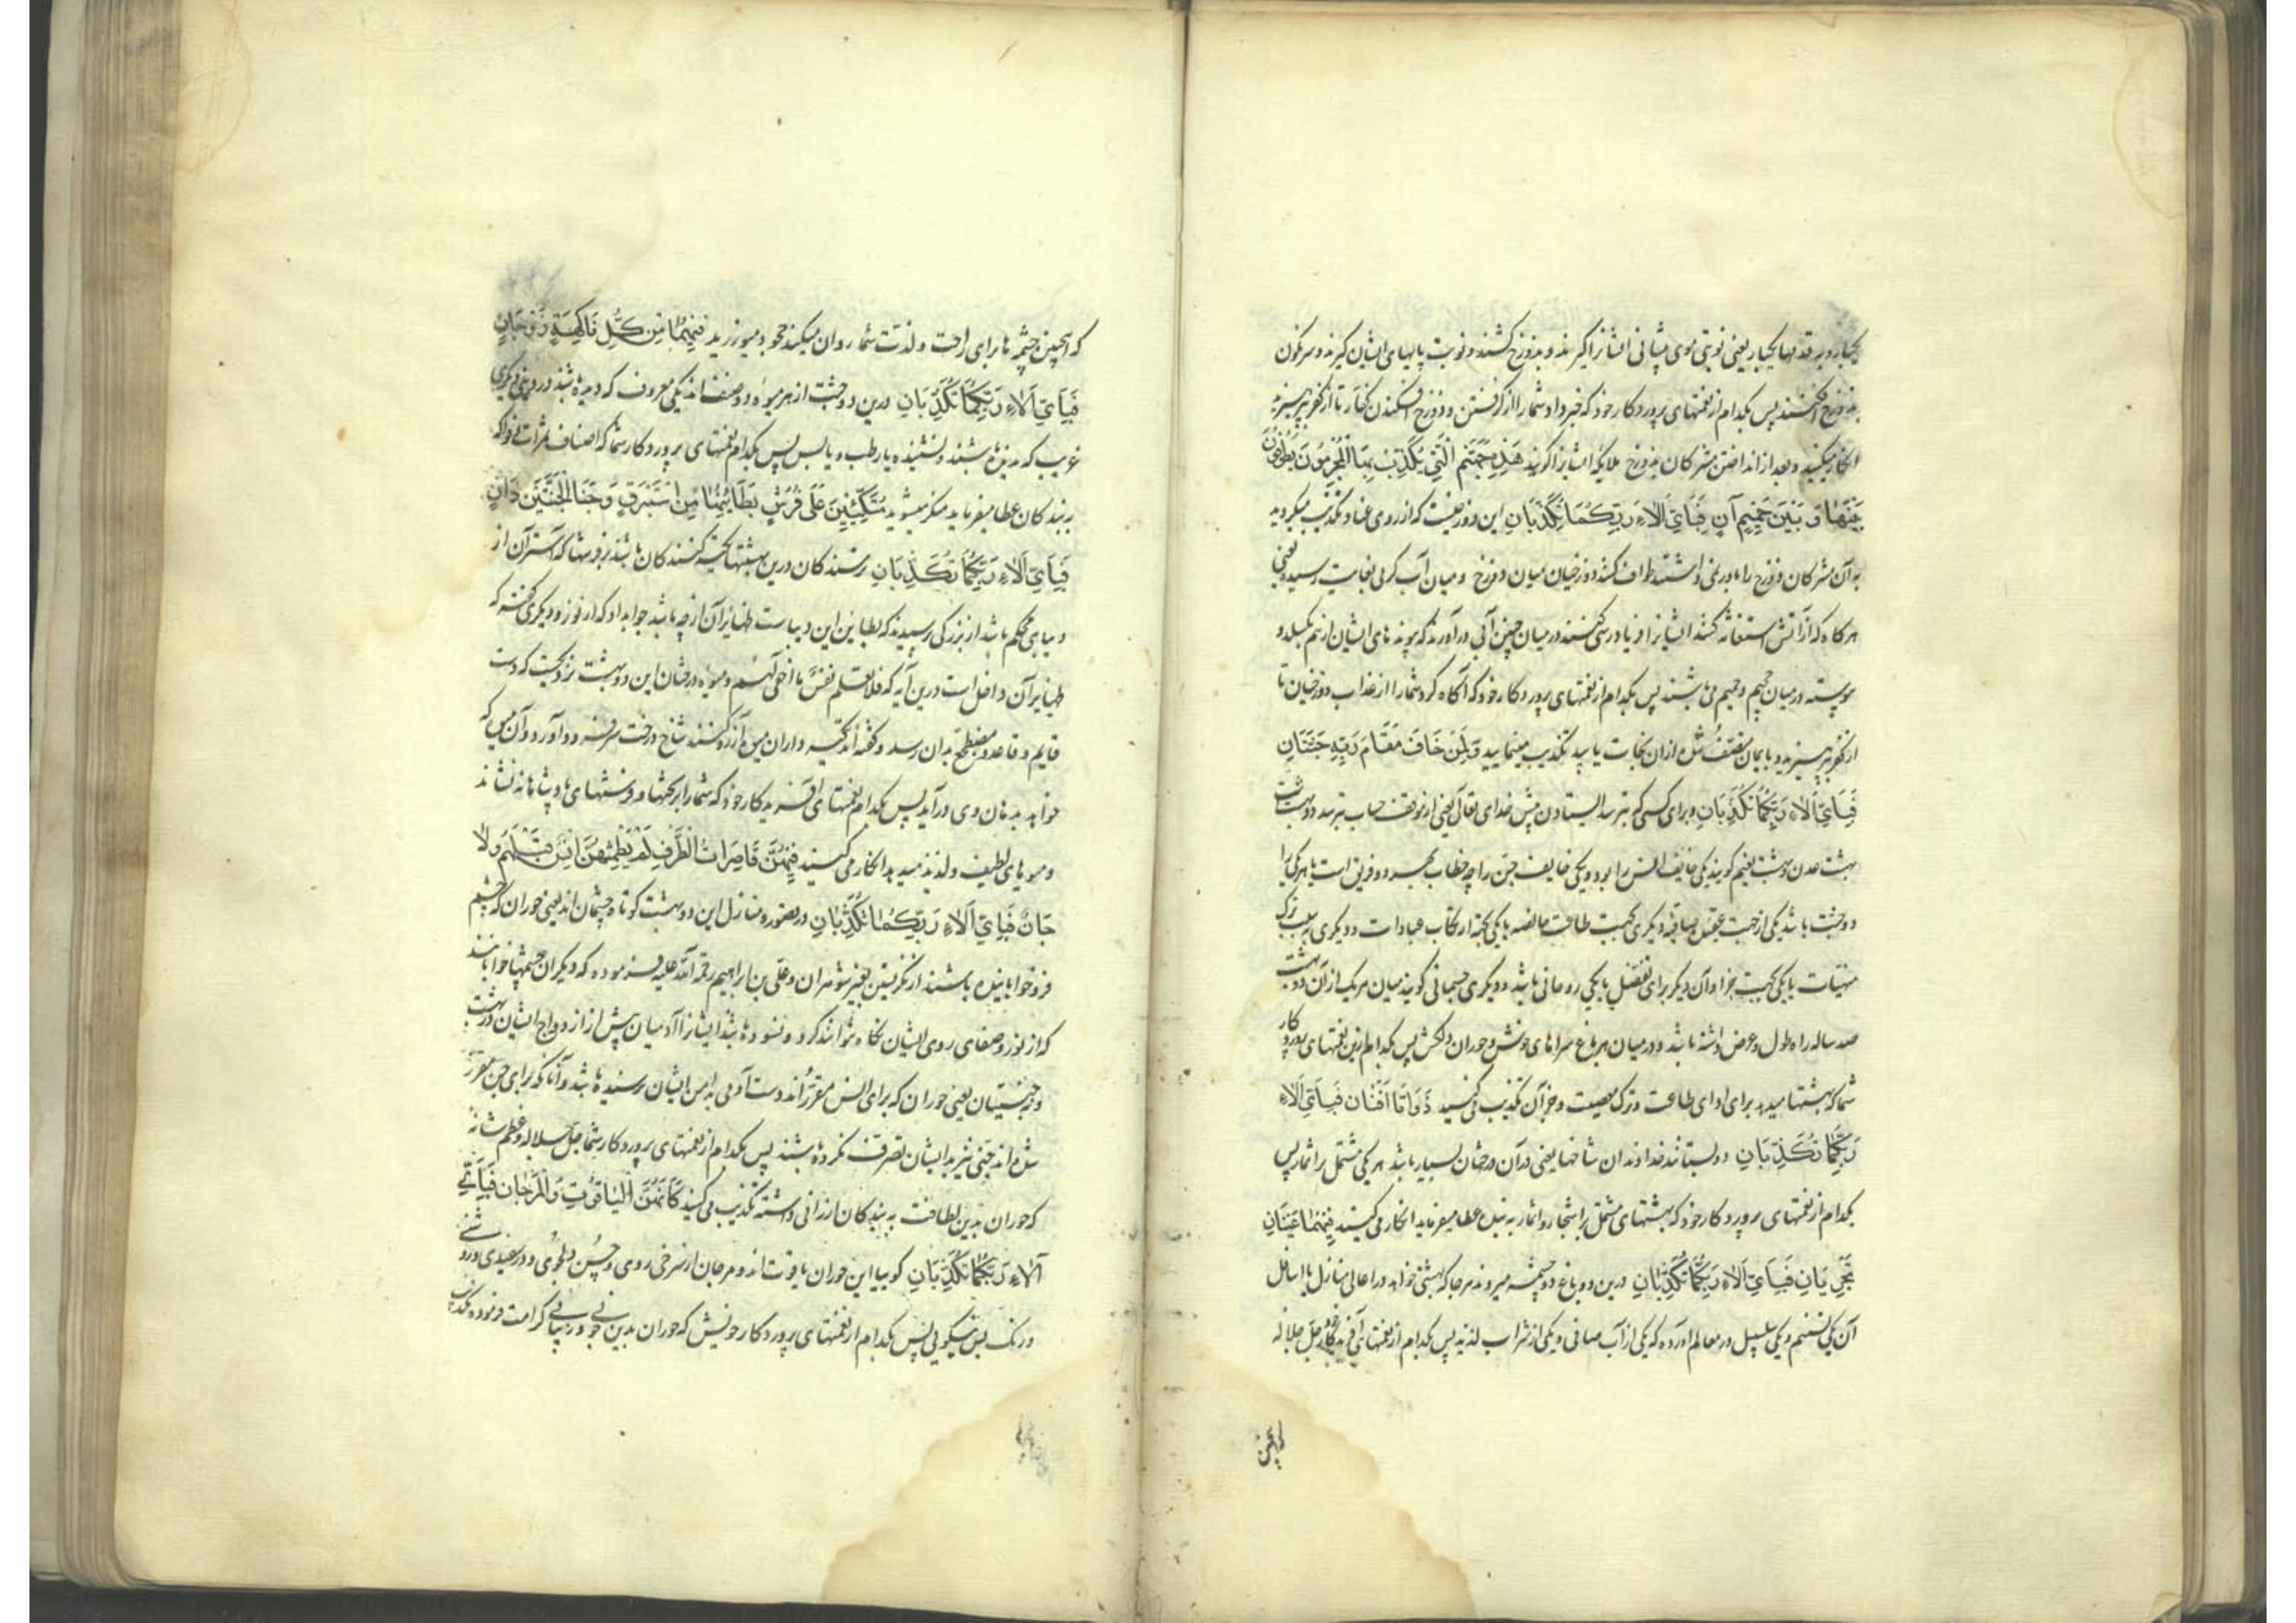 یکبار و به قدمها یکبار یعنی نوبتی موی پیشانی ایشانرا گیرند و بدوزخ کشند و نوبت پایهای ایشان گیرند و سرنگون
بدوزخ افکنند پس بکدام از نعمتهای پروردکار خود که خبر داد شما را از گرفتن و دوزخ افکندن کفار تا از کفر بپرهیزید
انکار میکنید و بعد از انداختن مشرکان بدوزخ ملائکه ایشانرا گویند هَذِهِ جَهَنَّمُ الَّتِي يُكَذِّبُ بِهَا الْمُجْرِمُونَ يَطُوفُونَ
بَيْنَهَا وَبَيْنَ حَمِيمٍ آنٍ فَبِأَيِّ آلَاءِ رَبِّكُمَا تُكَذِّبَانِ این دوزخیست که از روی عناد تکذیب میکردید
به آن مشرکان دوزخ را باور نمی داشتند طواف کنند دوزخیان میان دوزخ و میان آب گرمی بغایت رسیده یعنی
هرکاه که از آتش استغاثه کنند ایشانرا فریادرسی کنند در میان چنین آبی درآورند که پیوندهای ایشان از هم بکسلد و
پیوسته در میان جحیم و حمیم می باشند پس بکدام از نعمتهای پروردکار خود که آگاه کرد شما را از عذاب دوزخیان تا
از کفر بپرهیزید و بایمان متصف شده ازان نجات یابید تکذیب مینمایید وَلِمَنْ خَافَ مَقَامَ رَبِّهِ جَنَّتَانِ
فَبِأَيِّ آلَاءِ رَبِّكُمَا تُكَذِّبَانِ و برای کسی که بترسد از ایستادن پیش خدای تعالی یعنی از موقف حساب بترسد دو بهشت است
بهشت عدن و بهشت نعیم گویند یکی خایف انس را بود و یکی خایف جن را چه خطاب بهر دو فریق است یا هر یکی را
دو جنت باشد یکی از جهت عقیده صافیه و دیگری بجهت طاعت خالصه یا یکی بجهة ارتکاب عبادات و دیگری بسبب ترک
منهیات یا یکی بجهت جزا و آن دیگر برای تفضل یا یکی روحانی باشد و دیگری جسمانی گویند میان هر یک از آن دو بهشت
صد ساله راه طول و عرض داشته باشد و در میان هر باغ سراهای خوش و حوران دلکش پس بکدام ازین نعمتهای پروردکار
شما که بهشتها میدهد برای ادای طاعت و ترک معصیت و جز آن تکذیب می کنید ذَوَاتَا أَفْنَانٍ فَبِأَيِّ آلَاءِ
رَبِّكُمَا تُكَذِّبَانِ دو بستانند خداوندان شاخها یعنی در آن درختان بسیار باشد هر یکی مشتمل بر اثمار پس
بکدام از نعمتهای پروردکار خود که بهشتهای مشتمل بر اشجار و اثمار به بنده عطا میفرماید انکار می کنید فِيهِمَا عَيْنَانِ
تَجْرِيَانِ فَبِأَيِّ آلَاءِ رَبِّكُمَا تُكَذِّبَانِ درین دو باغ دو چشمه میروند هر جا که بهشتی خواهد در اعالی منازل یا اسافل
آن یکی تسنیم و یکی سلسبیل در معالم آورده که یکی از آب صافی و یکی از شراب لذیذ پس بکدام از نعمتهای آفریدکار خود جل جلاله
که اینچنین
که اینچنین چشمه ها برای راحت و لذت شما روان میکند جحود میورزید فِيهِمَا مِنْ كُلِّ فَاكِهَةٍ زَوْجَانِ
فَبِأَيِّ آلَاءِ رَبِّكُمَا تُكَذِّبَانِ درین دو جنت از هر میوه دو صنف اند یکی معروف که دیده باشند در دنیا و دیگری
غریب که ندیده باشند و نشنیده یا رطب و یابس پس بکدام نعمتهای پروردکار شما که اصناف ثمرات و فواکه
ببندکان عطا میفرماید منکر میشوید مُتَّكِئِينَ عَلَى فُرُشٍ بَطَائِنُهَا مِنْ إِسْتَبْرَقٍ وَجَنَى الْجَنَّتَيْنِ دَانٍ
فَبِأَيِّ آلَاءِ رَبِّكُمَا تُكَذِّبَانِ ترسندکان درین بهشتها تکیه کنندکان باشند بر فرشها که آستر آن از
دیبای محکم باشد از بزرکی پرسیدند که بطاین این دیباست ظهایر آن از چه باشد جواب داد که از نور و دیگری گفته که
ظهایر آن داخل است درین آیه که فلا تعلم نفس ما اخفی لهم و میوه درختان این دو بهشت نزدیکست که دست
قایم و قاعد و مضطجع بدان رسد و گفته اند تکیه داران میوه آرزو کنند شاخ درخت سر فرود آورد و آن میوه که
خواهد بدهان وی درآید پس بکدام نعمتهای آفریدکار خود که شما را بر تختها و فرشهای پادشاهانه نشاند
و میوهای لطیف و لذیذ میدهد انکار می کنید فِيهِنَّ قَاصِرَاتُ الطَّرْفِ لَمْ يَطْمِثْهُنَّ إِنْسٌ قَبْلَهُمْ وَلَا
جَانٌّ فَبِأَيِّ آلَاءِ رَبِّكُمَا تُكَذِّبَانِ در قصور و منازل این دو بهشت کوتاه چشمان اند یعنی حوران که چشم
فرو خوابانیده باشند از نگریستن بغیر شوهران و علی بن ابراهیم رحمة الله علیه فرموده که دیگران چشمها خوابانند
که از نور و صفای روی ایشان نگاه نتوانند کرد و نسوده باشند ایشانرا آدمیان پیش از ازدواج ایشان در بهشت
و نه جنیان یعنی حوران که برای انس مقررند دست آدمی به ایشان نرسیده باشد و آنانکه برای جن مقرر
شده اند جنی نیز به ایشان تصرف نکرده باشند پس بکدام از نعمتهای پروردکار شما جل جلاله و عظم شانه
که حوران بدین لطافت به بندکان ارزانی داشته تکذیب می کنید كَأَنَّهُنَّ الْيَاقُوتُ وَالْمَرْجَانُ فَبِأَيِّ
آلَاءِ رَبِّكُمَا تُكَذِّبَانِ گوییا این حوران یاقوت اند و مرجان از سرخی روی و حسن دلجوی و در سفیدی و روشنی
و رنگ پس بکدام از نعمتهای پروردکار خویش که حوران بدین خوبی و زیبایی کرامت فرموده